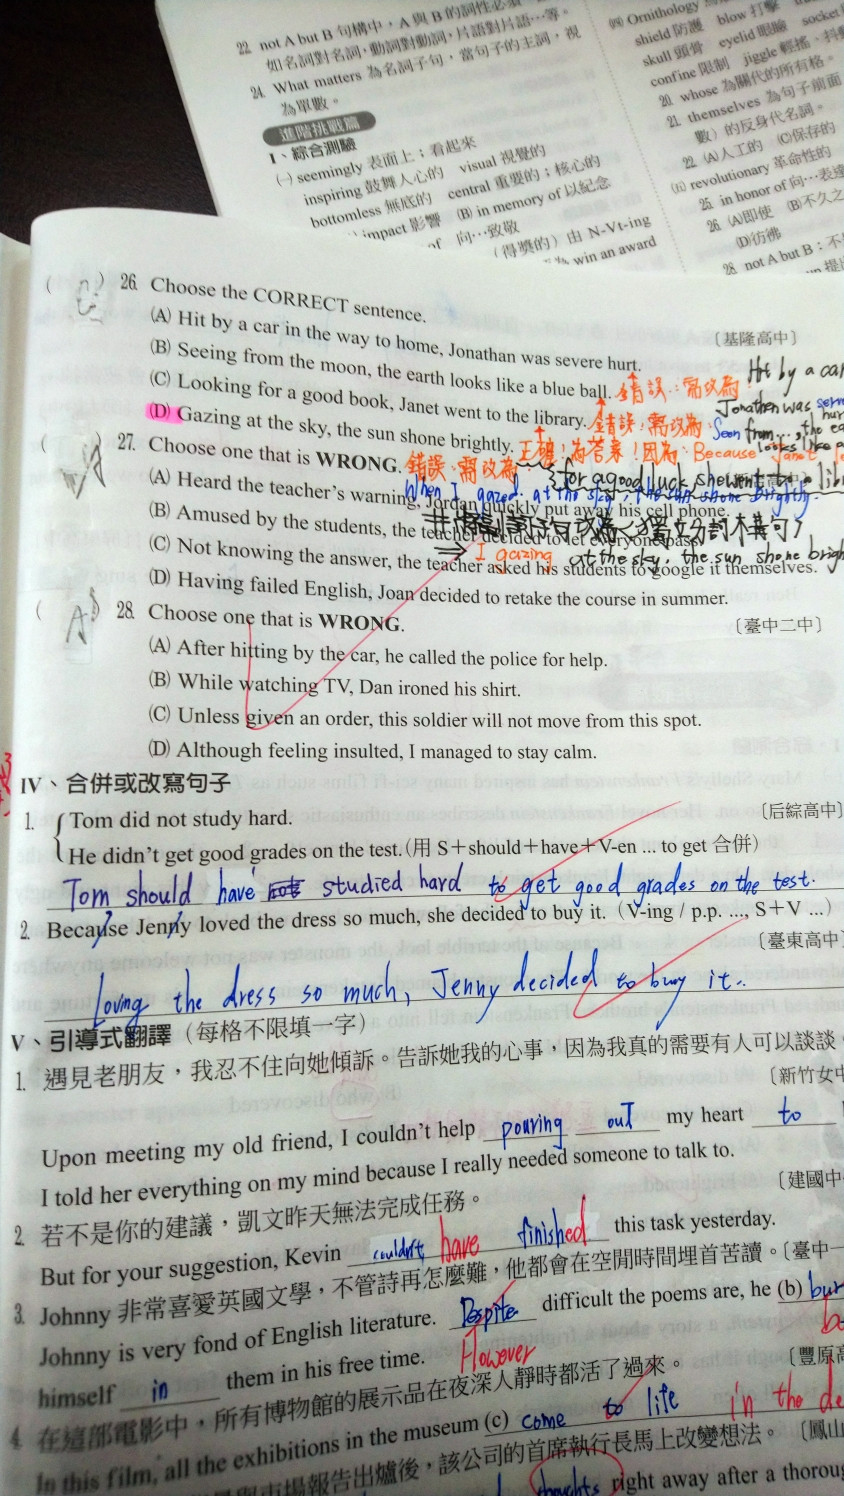 22. not A but B 句構中，A 與 B 的詞性必須
如名詞對名詞，動詞對動詞，片語對片語…等。
24. What matters 為名詞子句，當句子的主詞，視
為單數。
進階挑戰篇
I、綜合測驗
(一) seemingly 表面上；看起來
inspiring 鼓舞人心的 visual 視覺的
bottomless 無底的 central 重要的；核心的
impact 影響 (B) in memory of 以紀念
of 向…致敬
(得獎的) 由 N-Vt-ing
為 win an award
(四) Ornithology
shield 防護 blow 打擊
skull 頭骨 eyelid 眼瞼 socket
confine 限制 jiggle 輕搖，抖動
20. whose 為關代的所有格。
21. themselves 為句子前面
數）的反身代名詞。
22. (A)人工的 (C)保存的
(五) revolutionary 革命性的
25. in honor of 向…表達
26. (A)即使 (B)不久之
(D)彷彿
28. not A but B：不
( C ) 26. Choose the CORRECT sentence.
〔基隆高中〕
(A) Hit by a car in the way to home, Jonathan was severe hurt.
(B) Seeing from the moon, the earth looks like a blue ball.
錯誤：需改為： Hit by a car
Jonathan was
(C) Looking for a good book, Janet went to the library.
錯誤：需改為： Seen from
, the ea
looks like a
(D) Gazing at the sky, the sun shone brightly.
正確！為答案！因為： Because Janet
for a good luck, she went to a lib
錯誤：需改為
When I gazed at the sky, the sun shone brightly.
獨立分詞構句
⇒ I gazing at the sky, the sun shone brigh
( A ) 27. Choose one that is WRONG.
(A) Heard the teacher's warning, Jordan quickly put away his cell phone.
(B) Amused by the students, the teacher decided to let everyone pass.
(C) Not knowing the answer, the teacher asked his students to google it themselves.
(D) Having failed English, Joan decided to retake the course in summer.
( A ) 28. Choose one that is WRONG.
〔臺中二中〕
(A) After hitting by the car, he called the police for help.
(B) While watching TV, Dan ironed his shirt.
(C) Unless given an order, this soldier will not move from this spot.
(D) Although feeling insulted, I managed to stay calm.
IV、合併或改寫句子
1. Tom did not study hard.
〔后綜高中〕
He didn't get good grades on the test.(用 S＋should＋have＋V-en ... to get 合併)
Tom should have studied hard to get good grades on the test.
2. Because Jenny loved the dress so much, she decided to buy it.（V-ing / p.p. ..., S＋V ...）
〔臺東高中〕
Loving the dress so much, Jenny decided to buy it.
V、引導式翻譯（每格不限填一字）
1. 遇見老朋友，我忍不住向她傾訴。告訴她我的心事，因為我真的需要有人可以談談。
〔新竹女中
Upon meeting my old friend, I couldn't help pouring out my heart to
I told her everything on my mind because I really needed someone to talk to.
2. 若不是你的建議，凱文昨天無法完成任務。
〔建國中
But for your suggestion, Kevin couldn't have finished this task yesterday.
3. Johnny 非常喜愛英國文學，不管詩再怎麼難，他都會在空閒時間埋首苦讀。〔臺中一
Johnny is very fond of English literature. Despite difficult the poems are, he (b) bur
However
himself in them in his free time.
〔豐原高
4. 在這部電影中，所有博物館的展示品在夜深人靜時都活了過來。
In this film, all the exhibitions in the museum (c) come to life in the de
市場報告出爐後，該公司的首席執行長馬上改變想法。〔鳳山
thoughts right away after a thoroug